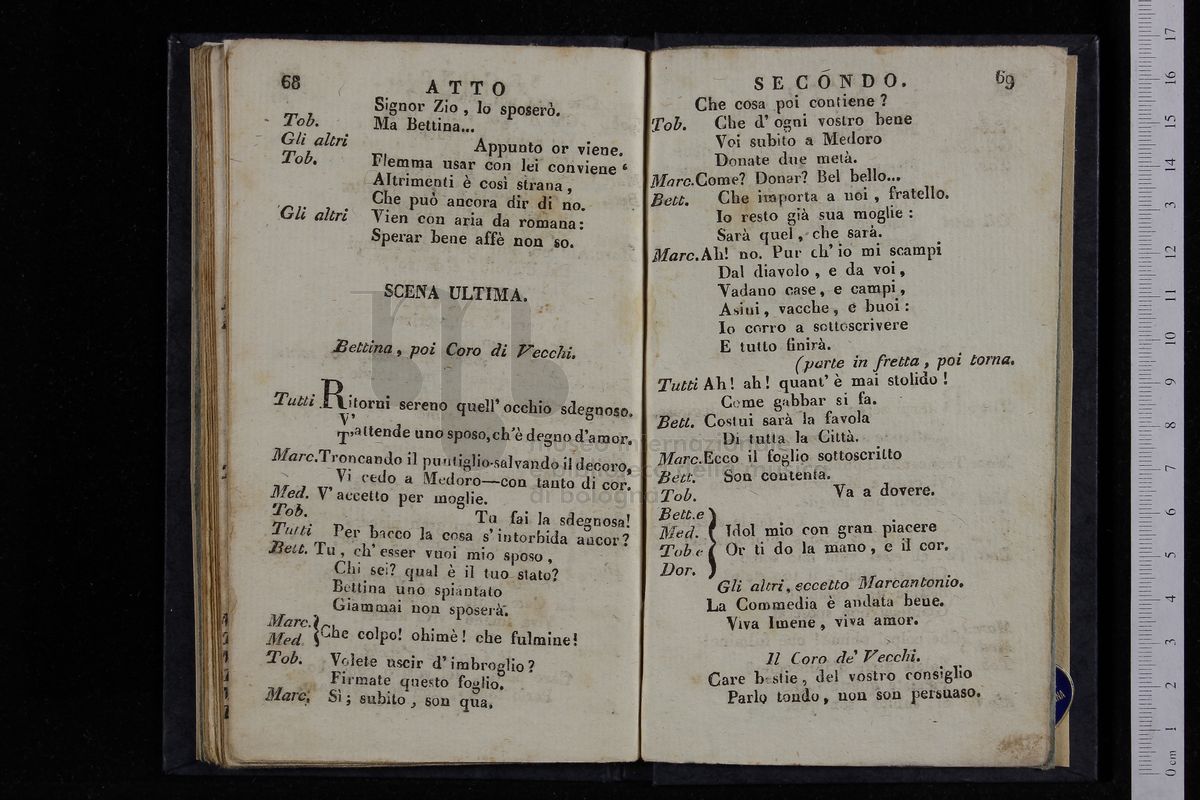 68
ATTO
Signor Zio , lo sposerò.
Tob. Ma Bettina...
Gli altri Appunto or viene.
Tob. Flemma usar con lei conviene
Altrimenti è così strana ,
Che può ancora dir di no.
Gli altri Vien con aria da romana:
Sperar bene affè non so.
SCENA ULTIMA.
Bettina , poi Coro di Vecchi.
Tutti Ritorni sereno quell' occhio sdegnoso.
V'
T'attende uno sposo, ch'è degno d'amor.
Marc. Troncando il puntiglio-salvando il decoro,
Vi cedo a Medoro—con tanto di cor.
Med. V' accetto per moglie.
Tob. Tu fai la sdegnosa!
Tutti Per bacco la cosa s' intorbida ancor?
Bett. Tu , ch' esser vuoi mio sposo ,
Chi sei? qual è il tuo stato?
Bettina uno spiantato
Giammai non sposerà.
Marc. }
Med. } Che colpo! ohimè! che fulmine!
Tob. Volete uscir d' imbroglio ?
Firmate questo foglio.
Marc. Sì ; subito , son qua.
SECONDO.
69
Che cosa poi contiene ?
Tob. Che d' ogni vostro bene
Voi subito a Medoro
Donate due metà.
Marc. Come? Donar? Bel bello...
Bett. Che importa a noi , fratello.
Io resto già sua moglie :
Sarà quel , che sarà.
Marc. Ah! no. Pur ch' io mi scampi
Dal diavolo , e da voi ,
Vadano case , e campi ,
Asini , vacche , e buoi :
Io corro a sottoscrivere
E tutto finirà.
(parte in fretta , poi torna.
Tutti Ah! ah! quant' è mai stolido !
Come gabbar si fa.
Bett. Costui sarà la favola
Di tutta la Città.
Marc. Ecco il foglio sottoscritto
Bett. Son contenta.
Tob. Va a dovere.
Bett. e }
Med. } Idol mio con gran piacere
Tob e } Or ti do la mano , e il cor.
Dor. }
Gli altri, eccetto Marcantonio.
La Commedia è andata bene.
Viva Imene , viva amor.
Il Coro de' Vecchi.
Care bestie , del vostro consiglio
Parlo tondo , non son persuaso.
museo internazionale
e biblioteca della musica
di bologna
0 cm 1 2 3 4 5 6 7 8 9 10 11 12 3 14 15 16 17